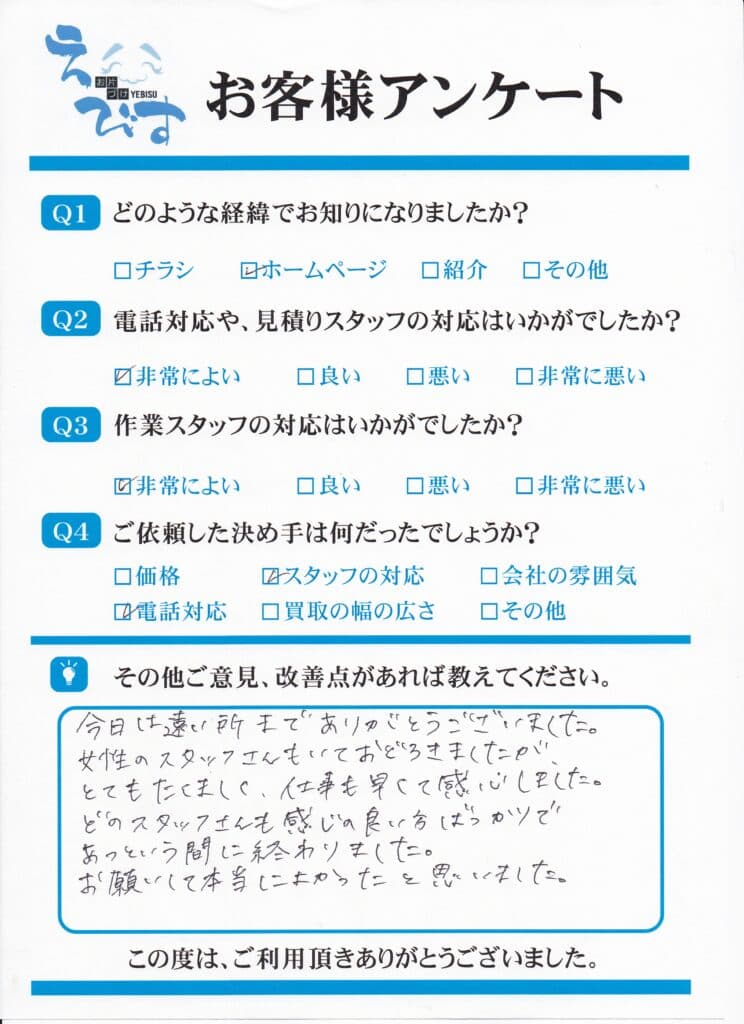 えびす
お片づけ YEBISU
お客様アンケート
Q1 どのような経緯でお知りになりましたか?
□チラシ ☑ホームページ □紹介 □その他
Q2 電話対応や、見積りスタッフの対応はいかがでしたか?
☑非常によい □良い □悪い □非常に悪い
Q3 作業スタッフの対応はいかがでしたか?
☑非常によい □良い □悪い □非常に悪い
Q4 ご依頼した決め手は何だったでしょうか?
□価格 ☑スタッフの対応 □会社の雰囲気
☑電話対応 □買取の幅の広さ □その他
その他ご意見、改善点があれば教えてください。
今日は遠い所までありがとうございました。
女性のスタッフさんもいておどろきましたが、
とてもたくましく、仕事も早くて感心しました。
どのスタッフさんも感じの良い方ばっかりで
あっという間に終わりました。
お願いして本当によかったと思いました。
この度は、ご利用頂きありがとうございました。